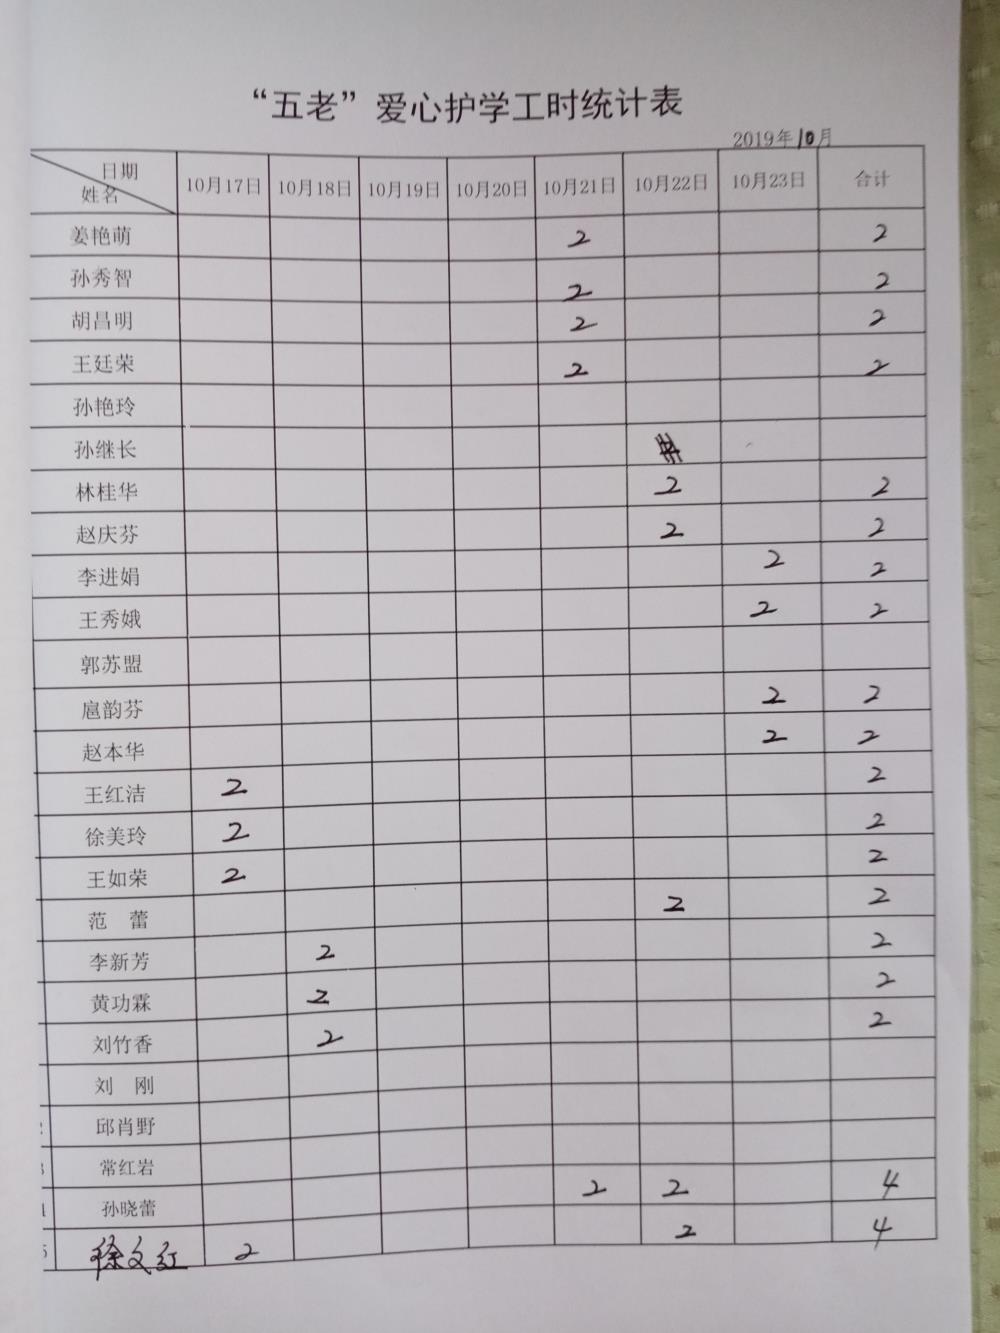 “五老”爱心护学工时统计表
2019年10月
日期 10月17日 10月18日 10月19日 10月20日 10月21日 10月22日 10月23日 合计
姓名
姜艳萌 2 2
孙秀智 2 2
胡昌明 2 2
王廷荣 2 2
孙艳玲
孙继长
林桂华 2 2
赵庆芬 2 2
李进娟 2 2
王秀娥 2 2
郭苏盟
扈韵芬 2 2
赵本华 2 2
王红洁 2 2
徐美玲 2 2
王如荣 2 2
范 蕾 2 2
李新芳 2 2
黄功霖 2 2
刘竹香 2 2
刘 刚
邱肖野
常红岩
孙晓蕾 2 2 4
5 徐文红 2 2 4